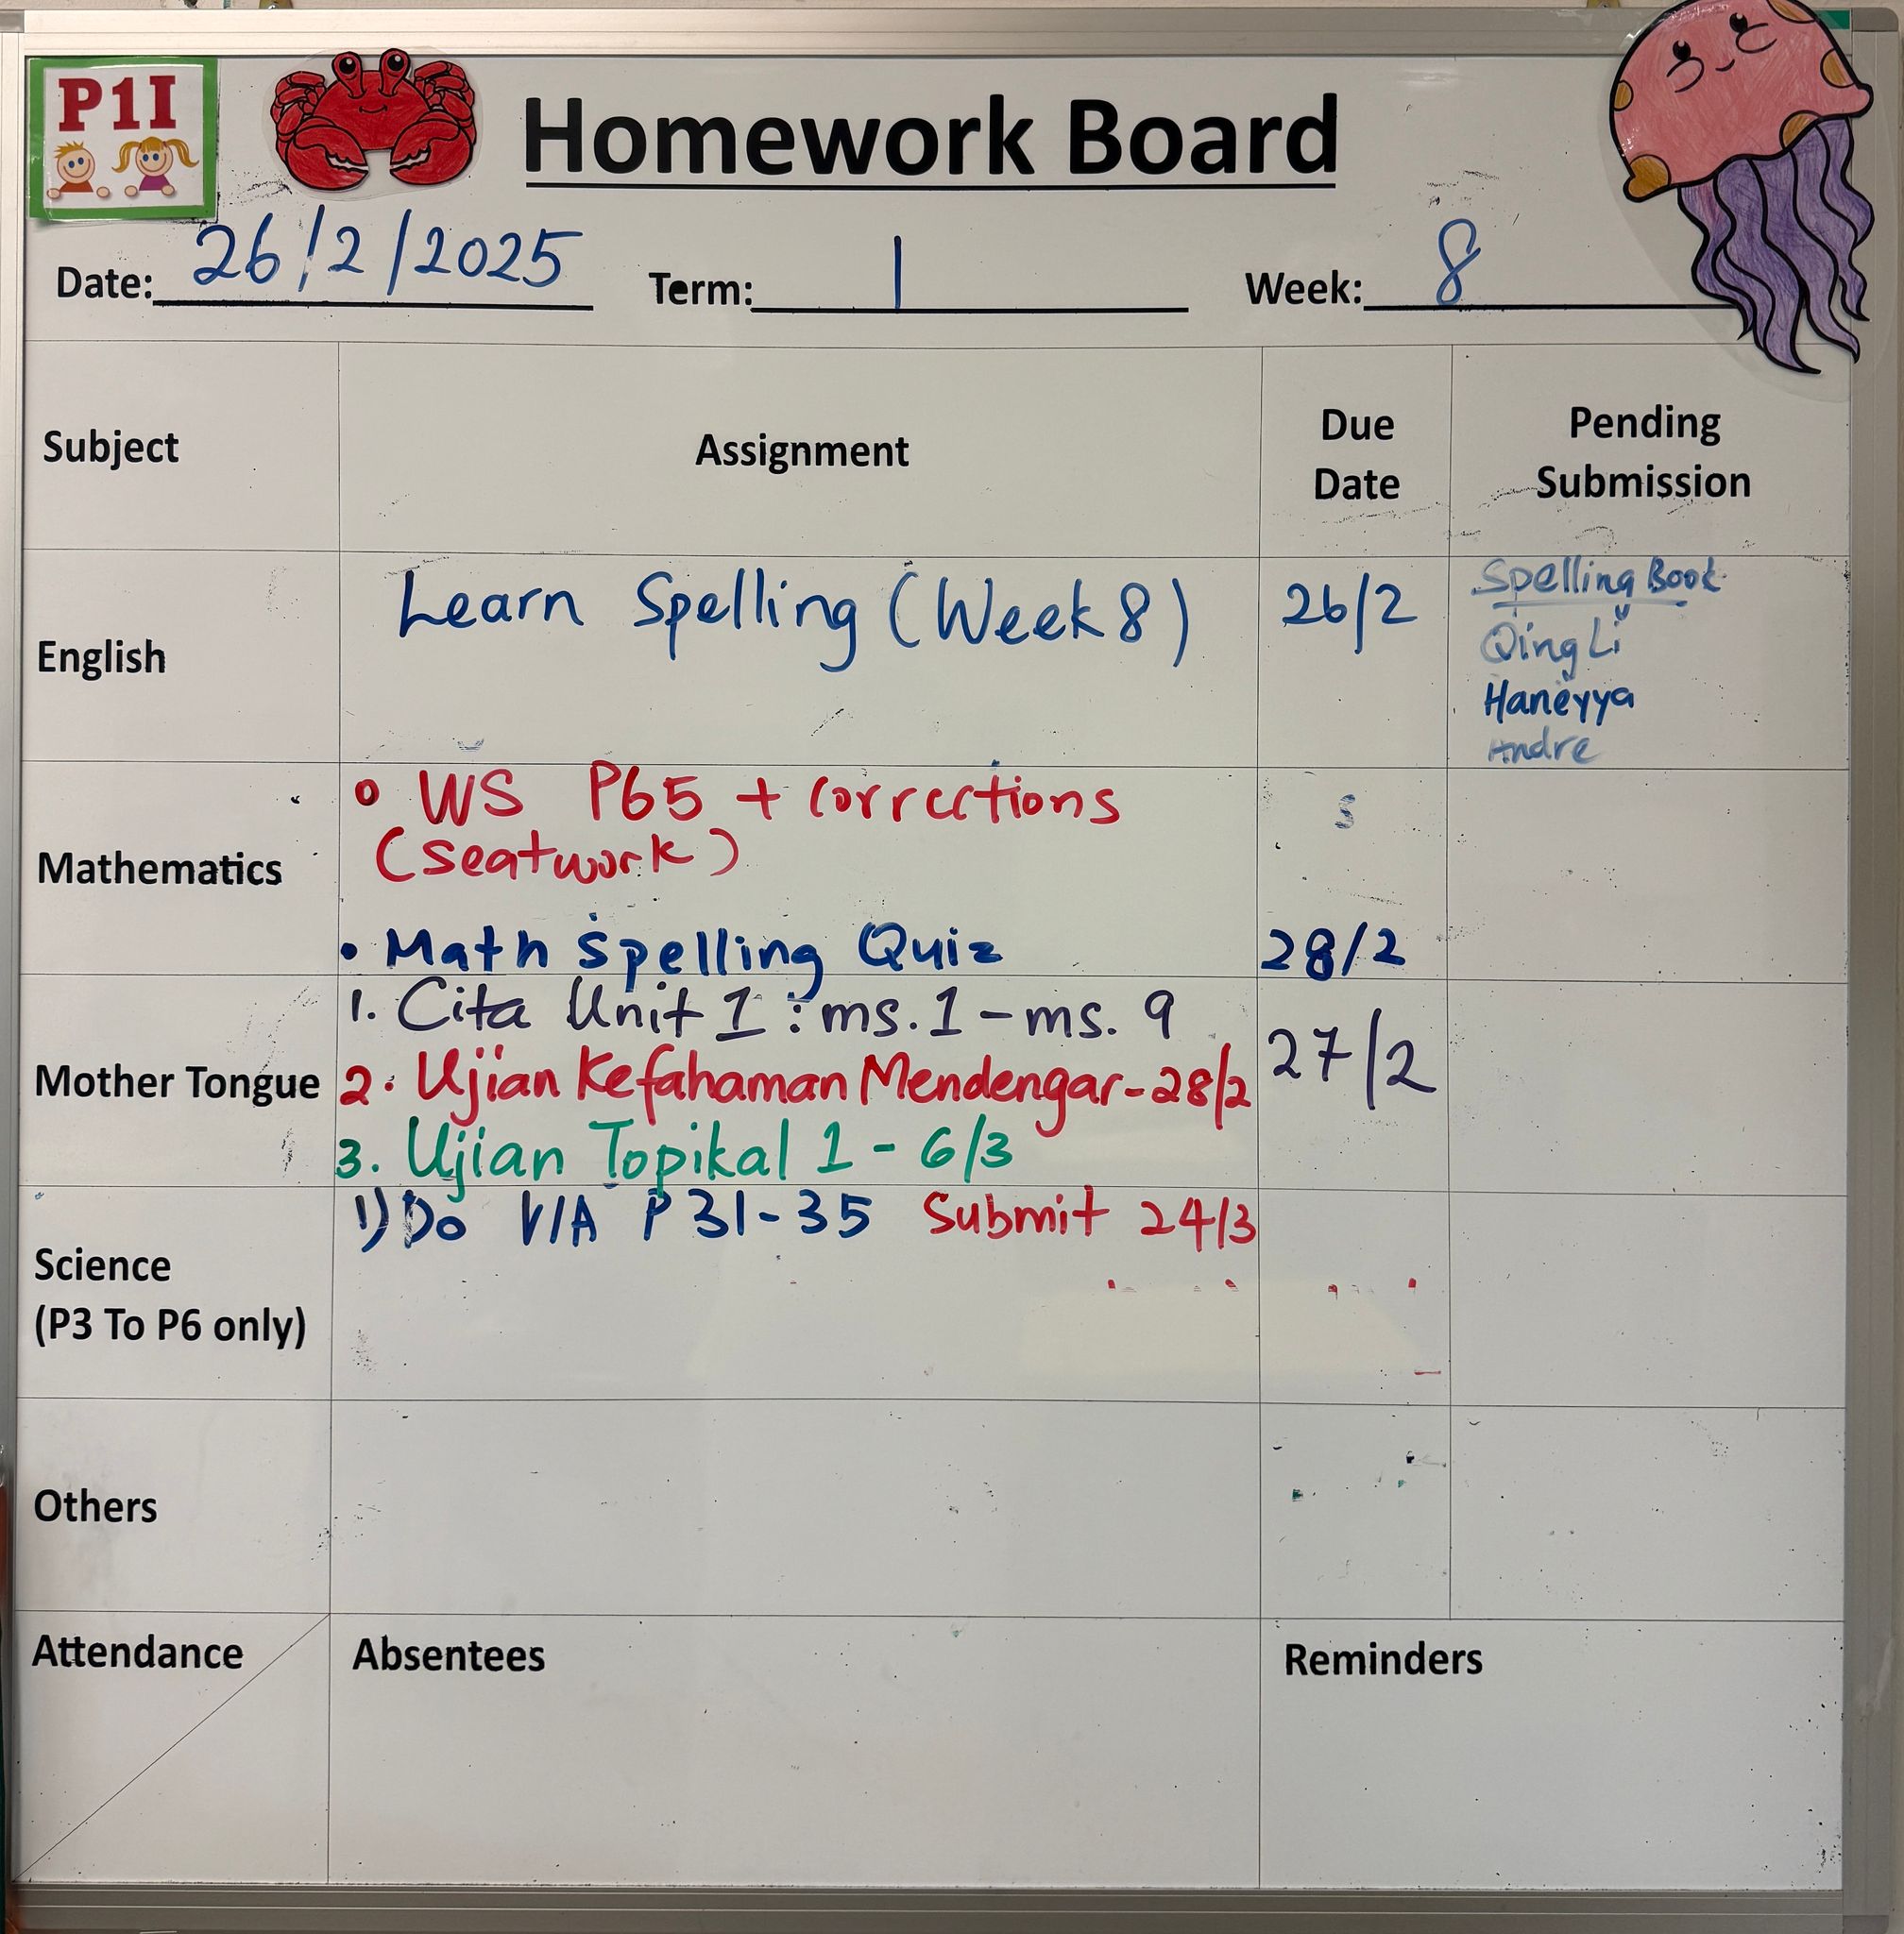 P1I
Homework Board
Date: 26/2/2025 Term: 1 Week: 8
Subject Assignment Due Date Pending Submission
English Learn Spelling (Week 8) 26/2 Spelling Book
Qing Li
Haneyya
Andre
Mathematics • WS P65 + corrections
(seatwork)
• Math Spelling Quiz 28/2
Mother Tongue 1. Cita Unit 1 : ms. 1 - ms. 9 27/2
2. Ujian Kefahaman Mendengar - 28/2
3. Ujian Topikal 1 - 6/3
Science
(P3 To P6 only)
1) Do V/A P 31-35 Submit 24/3
Others
Attendance Absentees Reminders